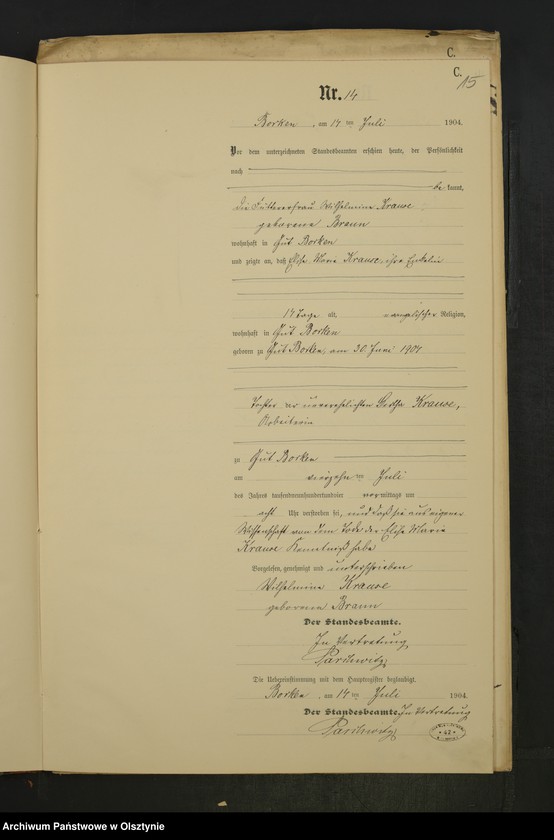 C.
C.
15
Nr. 14
Borken, am 14 ten Juli 1904.
Vor dem unterzeichneten Standesbeamten erschien heute, der Persönlichkeit
nach
be kannt,
die Futtererfrau Wilhelmine Krause
geborene Braun
wohnhaft in Gut Borken
und zeigte an, daß Else Marie Krause, ihre Enkelin
14 Tage alt, evangelischer Religion,
wohnhaft in Gut Borken
geboren zu Gut Borken, am 30. Juni 1904
Tochter der unverehelichten Krause,
Arbeiterin
zu Gut Borken
am vierzehn ten Juli
des Jahres tausendneunhundertundvier vormittags um
acht Uhr verstorben sei, und daß sie aus eigener
Wissenschaft von dem Tode der Marie
Krause Kenntniß habe
Vorgelesen, genehmigt und unterschrieben
Wilhelmine Krause
geborene Braun
Der Standesbeamte.
In Vertretung
Die Uebereinstimmung mit dem Hauptregister beglaubigt.
Borken, am 14 ten Juli 1904.
Der Standesbeamte. In Vertretung
42
Archiwum Państwowe w Olsztynie